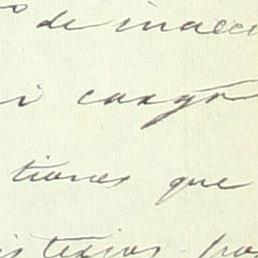 o de inacci
i cargo
tiones que
isterios por